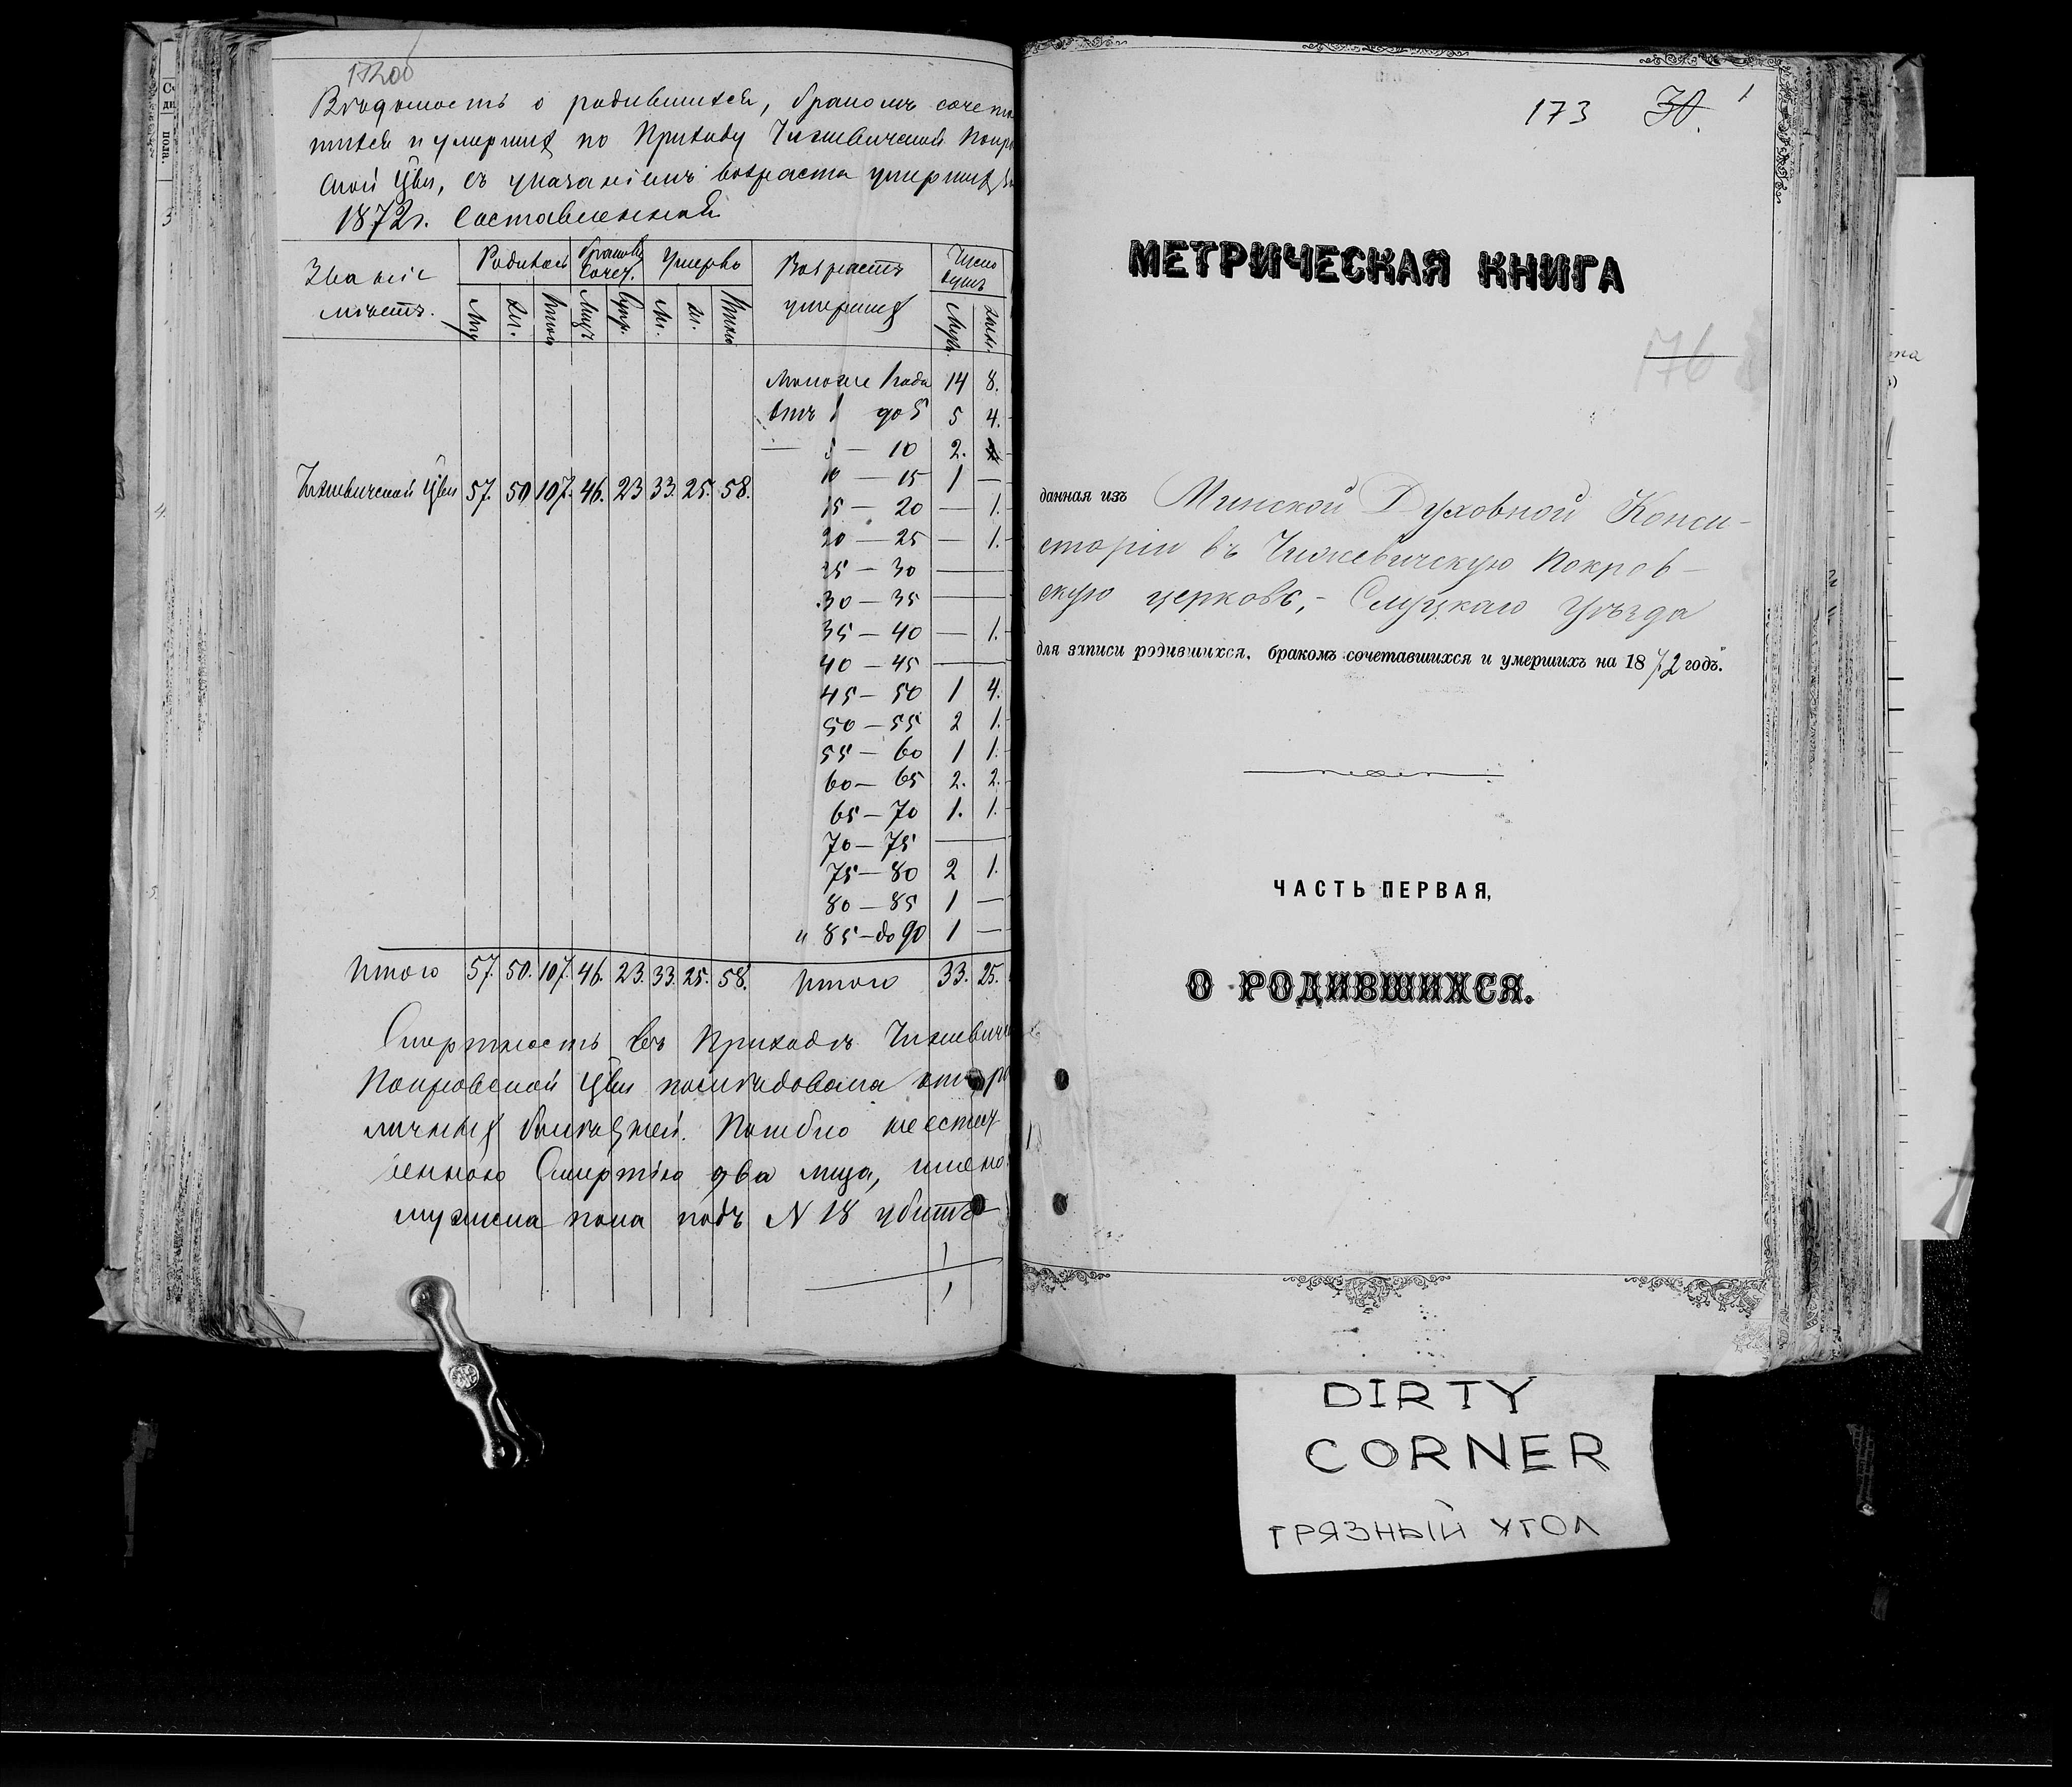 172об
Вѣдомость о родившихся, бракомъ сочета
шихся и умершихъ по Приходу Чижевичской Покро
ской Цкви, съ указаніемъ возраста умершихъ за
1872г. Составленная
Званіе мѣстъ. Родилось Бракомъ Сочет. Умерло Возрастъ умершихъ Число душъ
Муж. Жн. Итого Лицъ Супр. Мж. Жн. Итого Муж. Женс.
Моложе 1 года 14 8.
Отъ 1 до 5 5 4.
— 5 — 10 2.
10 — 15 1 —
Чижевичской Цкви 57. 50 107. 46. 23 33. 25. 58.
15 — 20 — 1.
20 — 25 — 1.
25 — 30 —
30 — 35 —
35 — 40 — 1.
40 — 45 —
45 — 50 1 4.
50 — 55 2 1.
55 — 60 1 1.
60 — 65 2. 2.
65 — 70 1. 1.
70 — 75 —
75 — 80 2 1.
80 — 85 1 —
" 85 — до 90 1 —
Итого 57. 50. 107. 46. 23. 33. 25. 58. Итого 33. 25.
Смертность въ Приходѣ Чижевичс
Покровской Цкви послѣдовала отъ раз
личныхъ болѣзней. Погибло неестест
венною Смертію два лица, имено
мужеска пола подъ N 18 убитъ
173 30. 1
МЕТРИЧЕСКАЯ КНИГА
176
данная изъ Минской Духовной Конси-
сторіи въ Чижевичскую Покров-
скую церковь,- Слуцкаго Уѣзда
для записи родившихся, бракомъ сочетавшихся и умершихъ на 1872 годъ.
ЧАСТЬ ПЕРВАЯ,
О РОДИВШИХСЯ.
DIRTY
CORNER
ГРЯЗНЫЙ УГОЛ